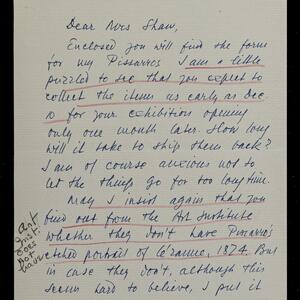 Dear Mrs Shaw,
Enclosed you will find the form
for my Pissarros. I am a little
puzzled to see that you expect to
collect the items as early as Dec.
10 for your exhibition opening
only one month later. How long
will it take to ship them back?
I am of course anxious not to
let the things go for too long time.
May I insist again that you
find out from the Art Institute
whether they don't have Pissarro's
etched portrait of Cézanne, 1874. But
in case they don't, although this
seems hard to believe, I put it
Art
Inst.
does
not
have